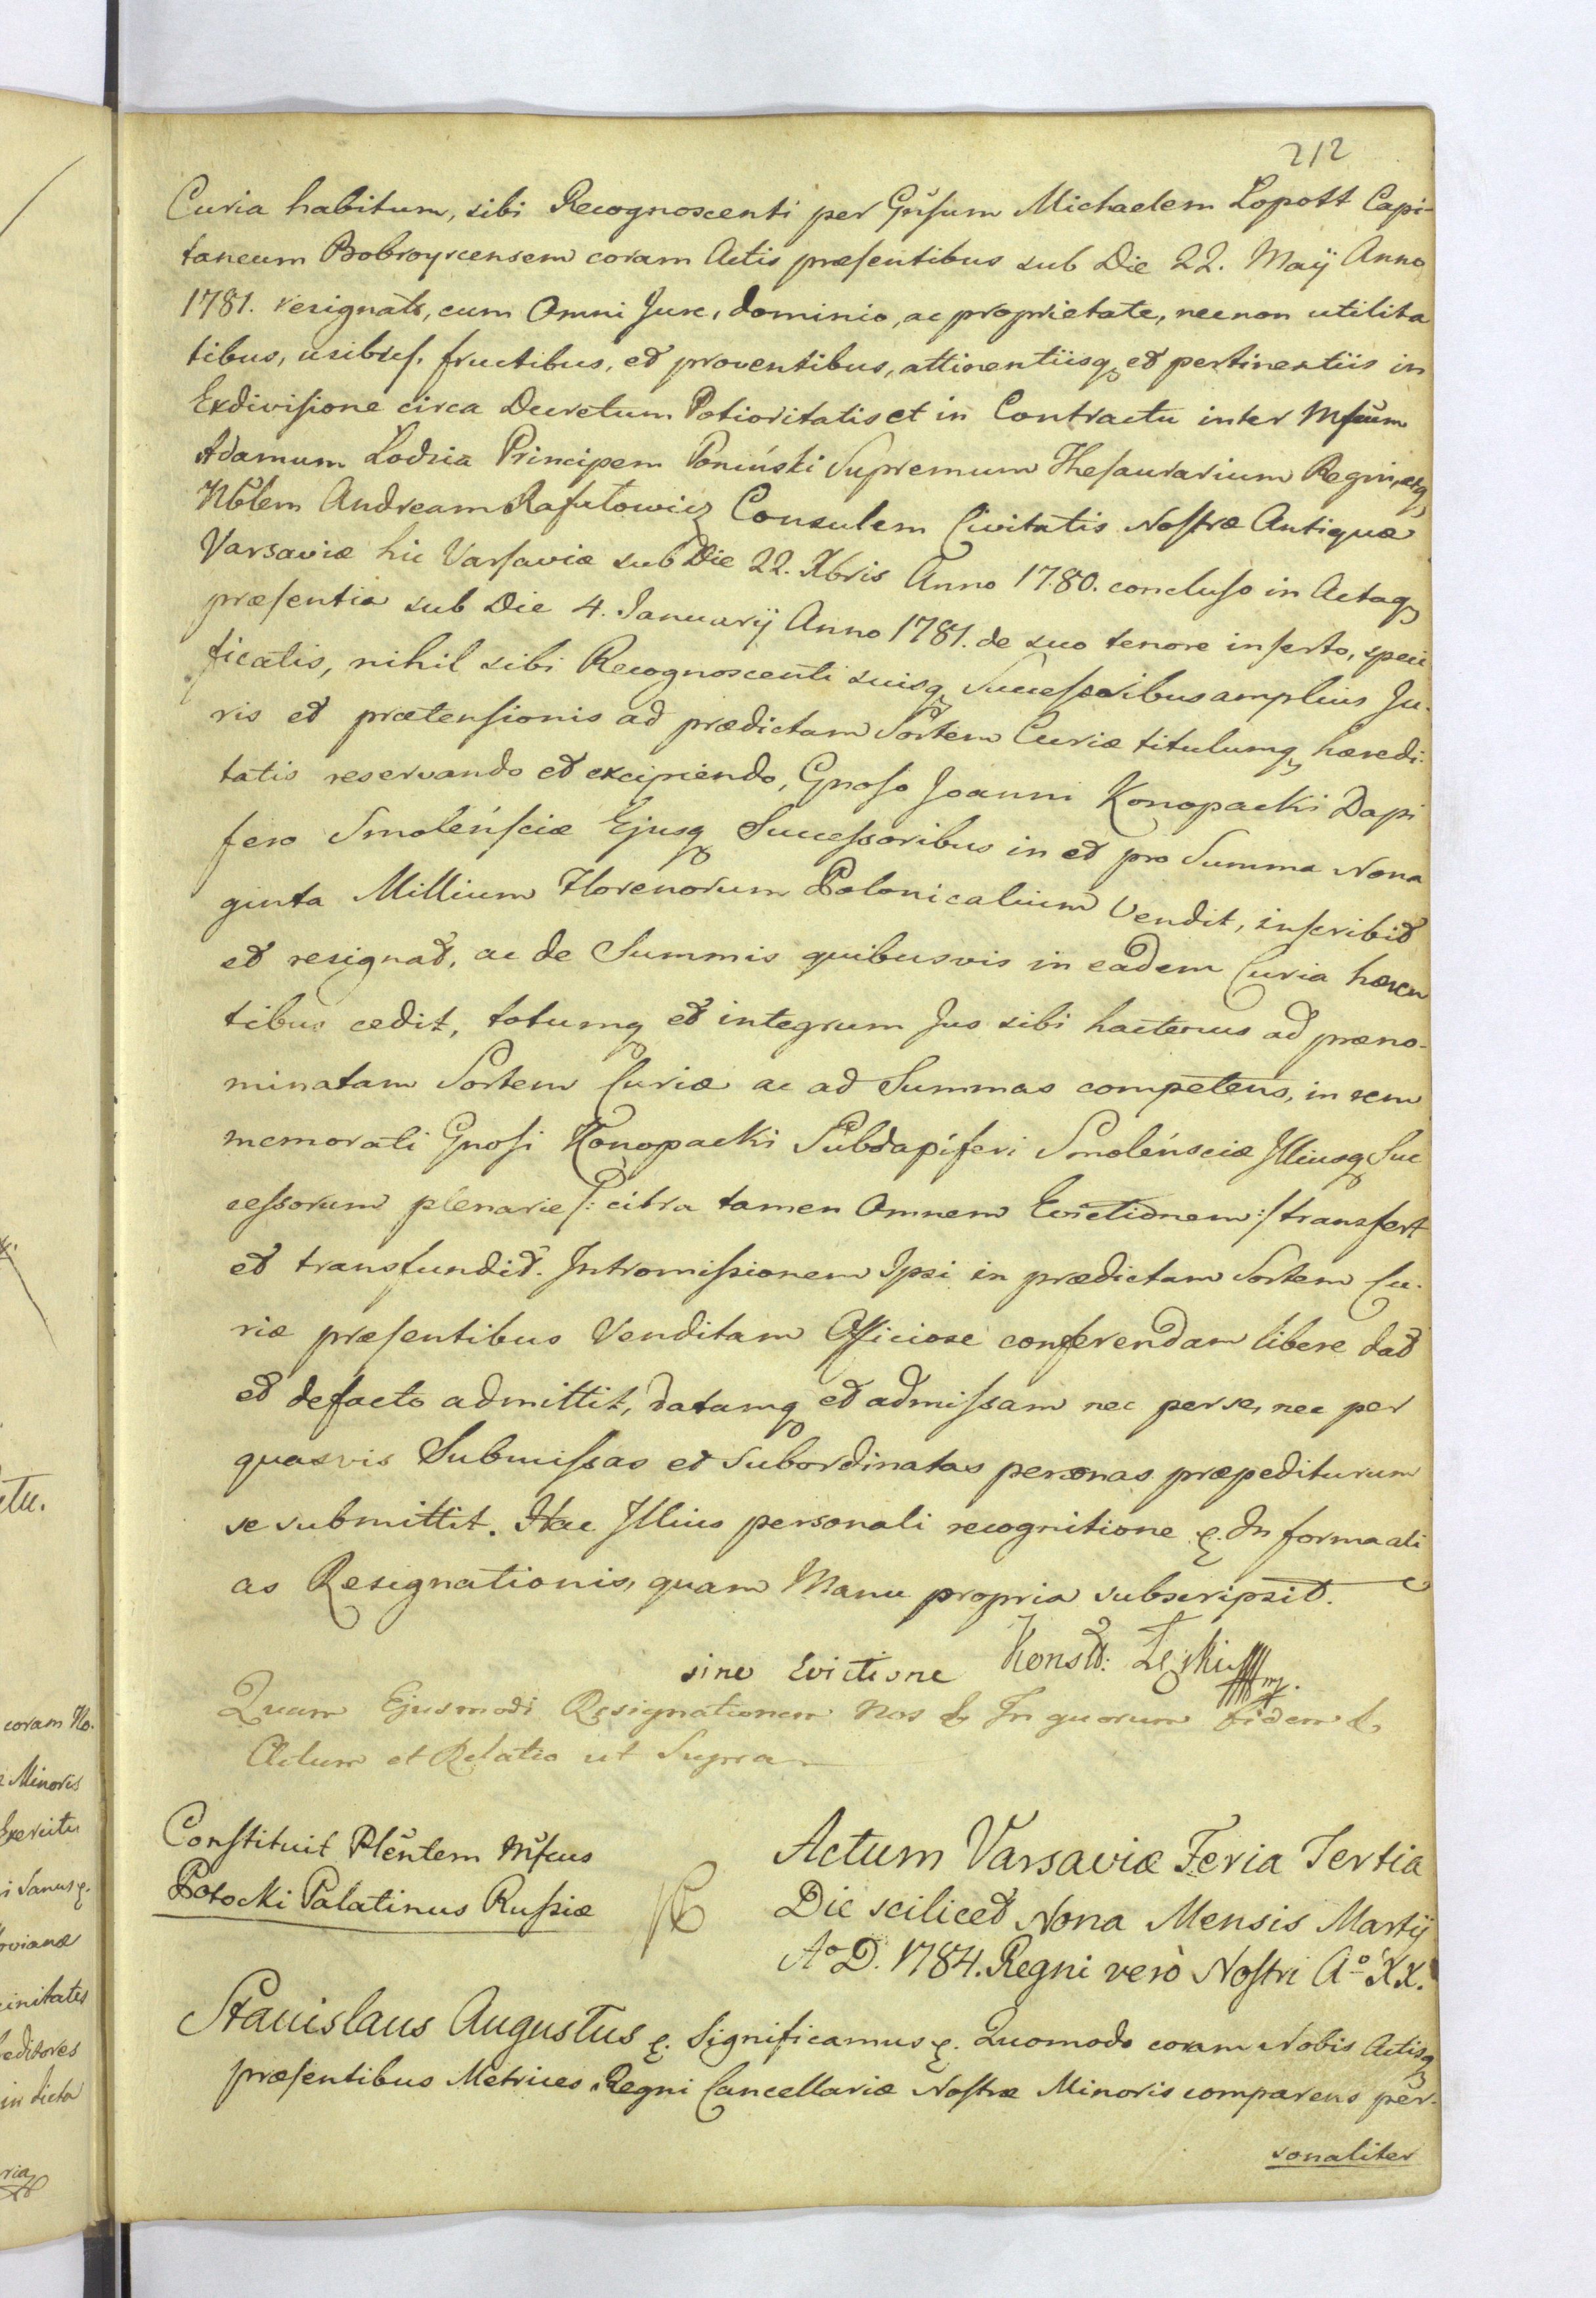 212
Curia habitum, sibi Recognoscenti per Gnŝum Michaelem Lopott Capi-
taneum Bobroycensem coram Actis præsentibus sub Die 22. Maij Anno
1781. resignato, cum Omni Jure, dominio, ac proprietate, necnon utilita
tibus, usibus, fructibus, et proventibus, attinentiisq et pertinentiis in
Exdivisione circa Decretum Potioritatis et in Contractu inter Mfcum
Adamum Lodzia Principem Poniński Supremum Thesaurarium Regni, atq
Nblem Andream Rafałowicz Consulem Civitatis Nostræ Antiquæ
Varsaviæ hic Varsaviæ sub Die 22. Xbris Anno 1780. concluso in Actaq
præsentia sub Die 4. Januarij Anno 1781. de suo tenore inserto, speci
ficatis, nihil sibi Recognoscenti suisq Successoribus amplius Ju-
ris et prætensionis ad prædictam Sortem Curiæ titulumq hæredi-
tatis reservando et excipiendo, Gnoso Joanni Konopacki Dapi
fero Smolensciæ Ejusq Successoribus in et pro Summa Nona
ginta Millium Florenorum Polonicalium Vendit, inscribit
et resignat, ac de Summis quibusvis in eadem Curia hæren
tibus cedit, totumq et integrum Jus sibi hactenus ad præno-
minatam Sortem Curiæ ac ad Summas competens, in rem
memorati Gnosi Konopacki Subdapiferi Smolensciæ Illiusq Suc
cessorum plenarie /: citra tamen Omnem Evictionem :/ transfert
et transfundit. Intromissionem Ipsi in prædictam Sortem Cu-
riæ præsentibus Venditam Officiose conferendam libere dat
et defacto admittit, datamq et admissam nec per se, nec per
quasvis Submissas et Subordinatas personas præpediturum
se submittit. Hac Illius personali recognitione &. In forma ali
as Resignationis, quam Manu propria subscripsit.
sine Evictione Konstt:
Quam Ejusmodi Resignationem Nos & In quorum fidem &
Actum et Relatio ut Supra
Constituit Plentem Mfcus
Potocki Palatinus Russiæ
Actum Varsaviæ Feria Tertia
Die scilicet Nona Mensis Martij
Ao D. 1784. Regni verò Nostri Ao XX.
Stanislaus Augustus &. Significamus &. Quomodo coram Nobis Actisq
præsentibus Metrices Regni Cancellariæ Nostræ Minoris comparens per-
sonaliter
coram No-
Minoris
Exercitu